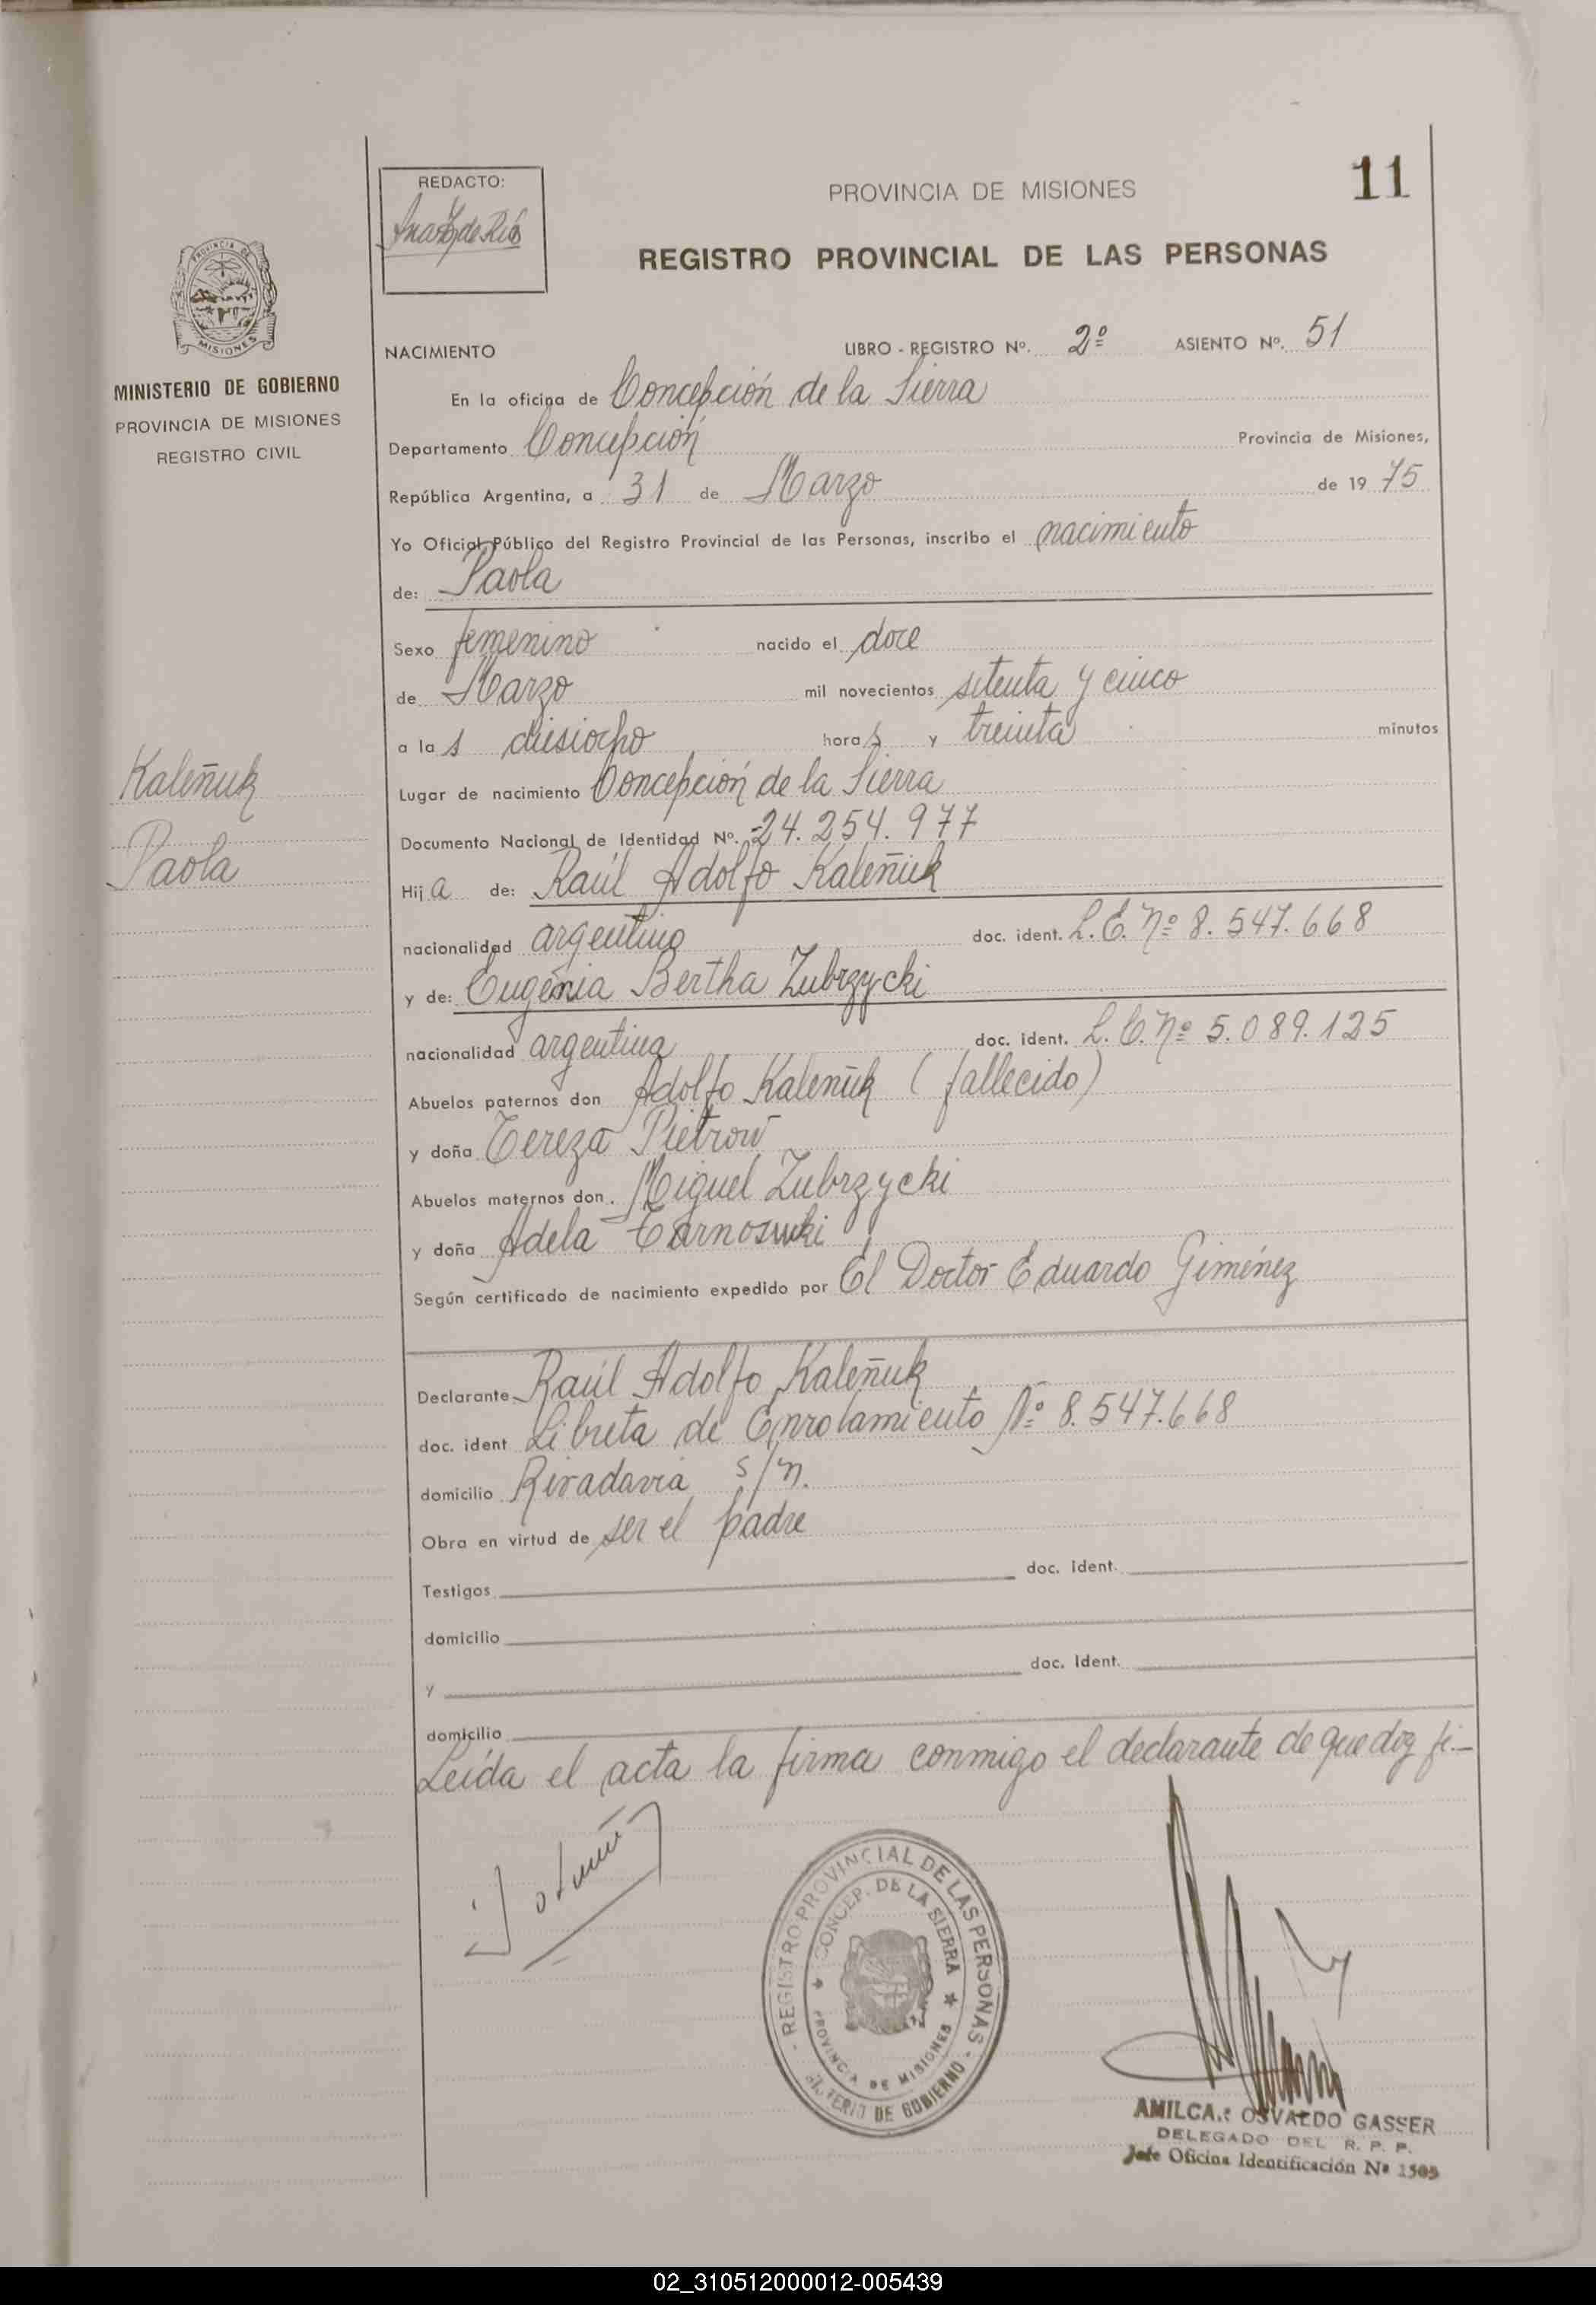 REDACTO:
PROVINCIA DE MISIONES
11
REGISTRO PROVINCIAL DE LAS PERSONAS
PROVINCIA DE
MISIONES
MINISTERIO DE GOBIERNO
PROVINCIA DE MISIONES
REGISTRO CIVIL
NACIMIENTO LIBRO - REGISTRO Nº. 2º ASIENTO Nº. 51
En la oficina de Concepción de la Sierra
Departamento Concepción Provincia de Misiones,
República Argentina, a 31 de Marzo de 19 75
Yo Oficial Público del Registro Provincial de las Personas, inscribo el nacimiento
de: Paola
Sexo femenino nacido el doce
de Marzo mil novecientos setenta y cinco
a la s diesiocho hora s y treinta minutos
Kaleñuk
Paola
Lugar de nacimiento Concepción de la Sierra
Documento Nacional de Identidad Nº. 24.254.977
Hij a de: Raúl Adolfo Kaleñuk
nacionalidad argentino doc. ident. L.E. Nº 8.547.668
y de: Eugenia Bertha Zubrzycki
nacionalidad argentina doc. ident. L.C. Nº 5.089.125
Abuelos paternos don Adolfo Kaleñuk (fallecido)
y doña Tereza Pietrow
Abuelos maternos don. Miguel Zubrzycki
y doña Adela
Según certificado de nacimiento expedido por El Doctor Eduardo Giménez
Declarante Raúl Adolfo Kaleñuk
doc. ident Libreta de Enrolamiento Nº 8.547.668
domicilio Rivadavia s/n.
Obra en virtud de ser el padre
Testigos doc. ident.
domicilio
y doc. Ident.
domicilio
Leída el acta la firma conmigo el declarante de que doy fe.-
REGISTRO PROVINCIAL DE LAS PERSONAS
CONCEP. DE LA SIERRA
PROVINCIA DE MISIONES
DE GOBIERNO
OSVALDO GASSER
DELEGADO DEL R. P. P.
Jefe Oficina Identificación Nº 1505
02_310512000012-005439